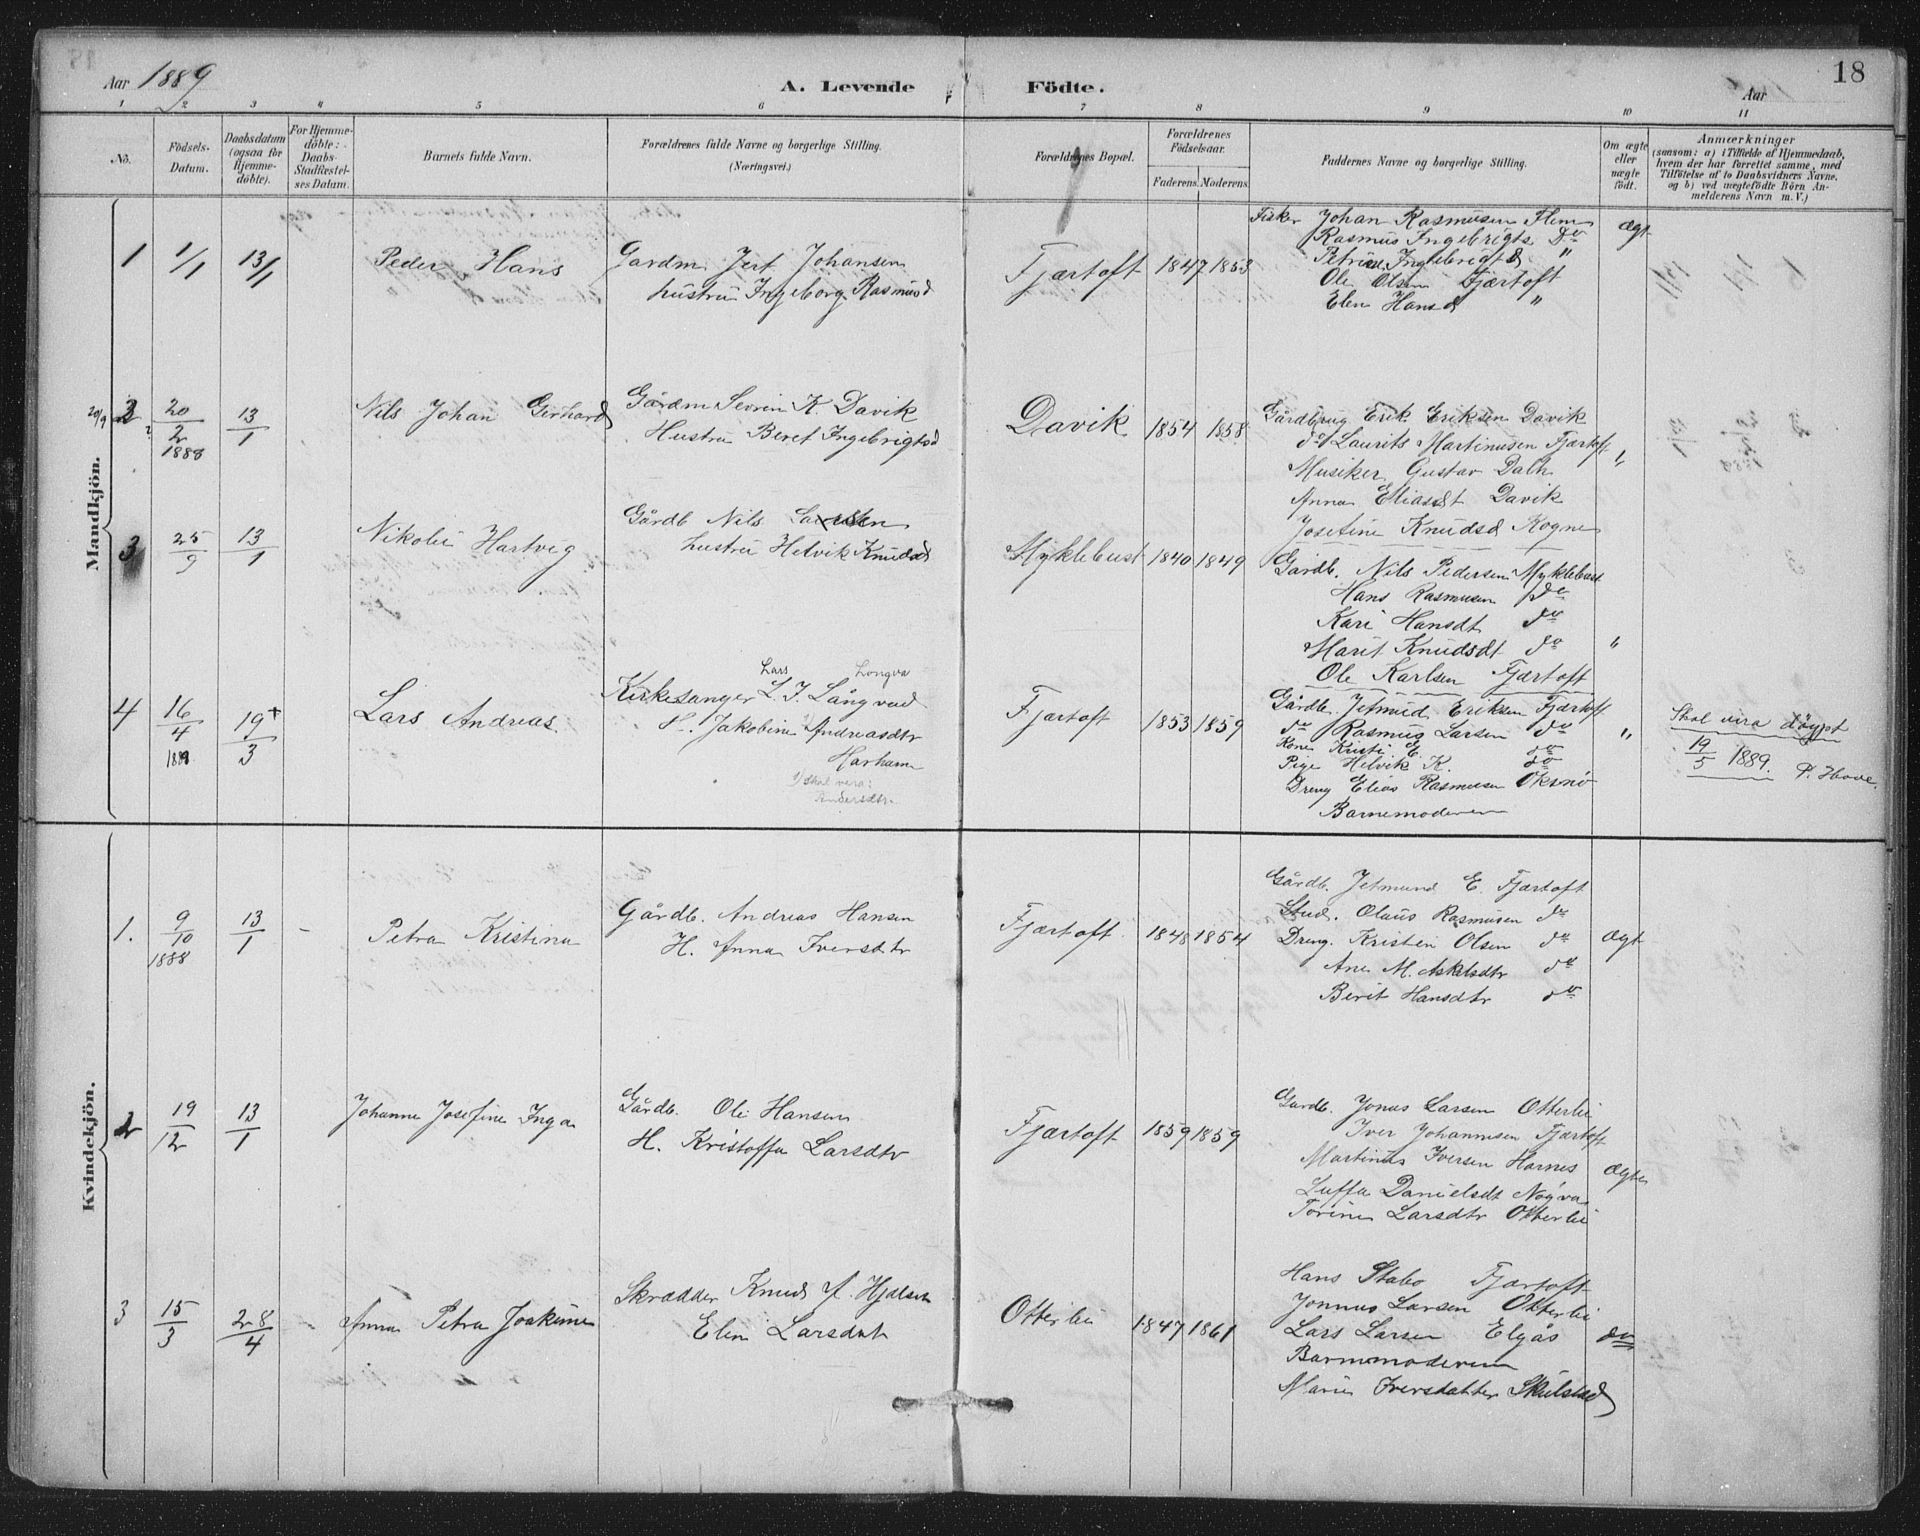 Aar 1889
A. Levende Födte.
Aar
18
1 2 3 4 5 6 7 8 9 10 11
No.
Födsels-Datum.
Daabsdatum (ogsaa för Hjemme-döbte).
For Hjemme-döbte: Daabs-Stadfestel-ses Datum.
Barnets fulde Navn.
Forældrenes fulde Navne og borgerlige Stilling. (Næringsvei.)
Forældrenes Bopæl.
Forældrenes Födselsaar.
Faderens. Moderens.
Faddernes Navne og borgerlige Stilling.
Om ægte eller uægte födt.
Anmærkninger
(saasom: a) i Tilfælde af Hjemmedaab, hvem der har forrettet samme, med Tilföielse af to Daabsvidners Navne, og b) ved uægtefödte Börn An-melderens Navn m. V.)
Mandkjön.
1 1/1 13/1 Peder Hans
Gardm Jert Johansen
hustru Ingeborg Rasmusd
Fjærtoft 1847 1853
Fisker Johan Rasmusen Flem
Rasmus Ingebrigts do
Petrine Ingebrigtd "
Ole Olsen Fjærtoft
Elen Hansd "
Ægt
20/9 2 20/2 1888 13/1 Nils Johan Gerhard
Gårdm Sevrin K. Davik
Hustru Beret Ingebrigtsd
Davik 1854 1858
Gårdbrug Erik Eriksen Davik
do Laurits Martinusen Fjærtoft
Musiker Gustav Dalh
Anna Eliasdt Davik
Josefine Knudsd Rogne
"
3 25/9 13/1 Nikolai Hartvig
Gårdb Nils
hustru Helvik Knudsd
Myklebust 1840 1849
Gårdb. Nils Pedersen Myklebust
Hans Rasmusen do
Kari Hansdt do
Marit Knudsdt do
Ole Karlsen Fjærtoft
"
4 16/4 1889 19/3 + Lars Andreas
Lars Longva
Kirkesanger L. I. Långvad
H. Jakobine Andreasdtr
Harham
1/ Skal vera:
Andersdtr.
Fjærtoft 1853 1859
Gårdb. Jetmud Eriksen Fjærtoft
do Rasmus Larsen do
Kone Kristi E. do
Pige Helvik K. do
Dreng Elias Rasmusen Oksnø
Barnemoderen
"
Skal vera døypt
19/5 1889. P. Hove.
Kvindekjön.
1. 9/10 1888 13/1 - Petra Kristina
Gårdb. Andreas Hansen
H. Anna Iversdtr
Fjærtoft 1848 1854
Gårdb. Jetmund E. Fjærtoft
Stud. Olaus Rasmusen do
Dreng. Kristen Olsen do
Ane M. Askelsdtr do
Berit Hansdtr do
Ægt
2 19/12 13/1 Johanne Josefine Inga
Gårdb. Ole Hansen
H. Kristoffa Larsdtr
Fjærtoft 1859 1859
Gardb. Jonas Larsen Otterlei
Iver Johannesen Fjærtoft
Martinus Iversen Harnes
Luffa Danielsdt Nogva
Torine Larsdtr Otterlei
Ægte
3 15/3 28/4 - Anna Petra Joakime
Skrædder Knud A. Hjelsen
Elen Larsdat
Otterlei 1847 1861
Hans Stabo Fjærtoft
Jonnus Larsen Otterlei
Lars Larsen Elgås
Barnemoderen
Marie Iversdatter Skulstad
do